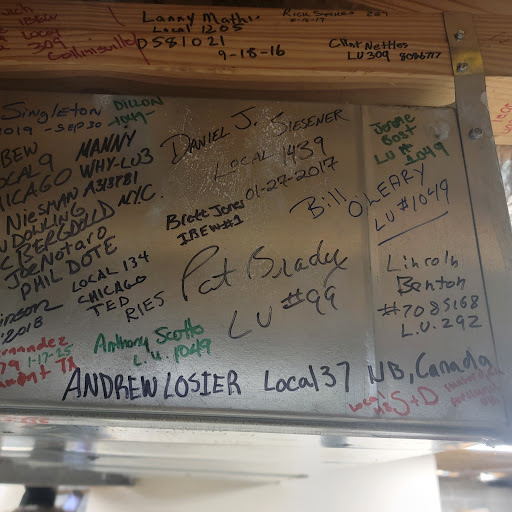 IBEW
Local
309
Collinsville
Lanny Mathis
Local 1205
D581021
9-18-16
Rick
Clint Nettles
LU309 8086717
Singleton
2019 - Sep 30
DILLON
-1049-
DANIEL J. SIESENER
LOCAL 1439
01-27-2017
Jonne
Bost
LU #
1049
IBEW
LOCAL 9
CHICAGO
NIESMAN
DOWLING
C BERGDOLD
JOE NOTARO
PHIL DOTE
MANNY
WHY-LU3
A43781
NYC.
Brett Jones
IBEW #1
Bill O'LEARY
LU #1049
Pat Brady
LU #99
LOCAL 134
CHICAGO
TED RIES
Lincoln
Benton
#7085168
L.U. 292
2018
1-17-25
TX
Anthony Scotto
L.U. 1049
ANDREW LOSIER Local 37 NB, Canada
Local
S+D